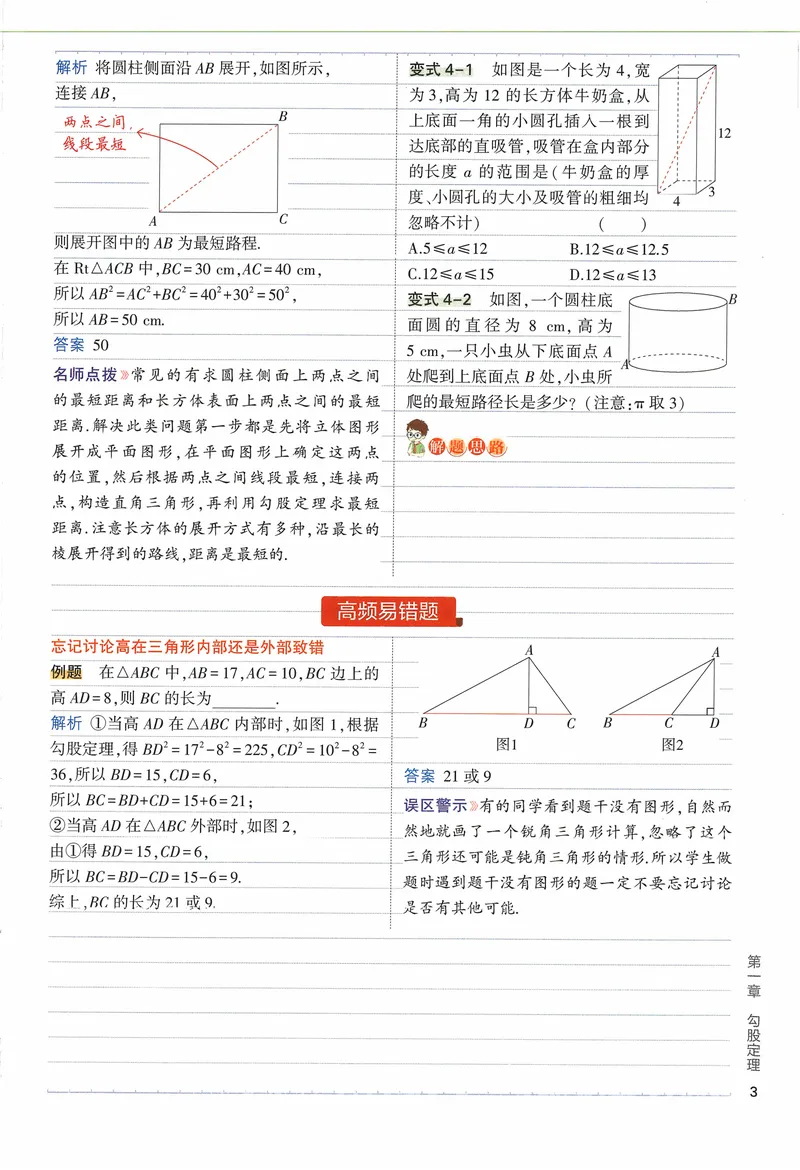 解析 将圆柱侧面沿 AB 展开,如图所示,
连接 AB,
两点之间,
线段最短
B
A
C
则展开图中的 AB 为最短路程.
在 Rt△ACB 中,BC=30 cm,AC=40 cm,
所以 AB²=AC²+BC²=40²+30²=50²,
所以 AB=50 cm.
答案 50
名师点拨 常见的有求圆柱侧面上两点之间
的最短距离和长方体表面上两点之间的最短
距离.解决此类问题第一步都是先将立体图形
展开成平面图形,在平面图形上确定这两点
的位置,然后根据两点之间线段最短,连接两
点,构造直角三角形,再利用勾股定理求最短
距离.注意长方体的展开方式有多种,沿最长的
棱展开得到的路线,距离是最短的.
变式 4-1 如图是一个长为 4,宽
为 3,高为 12 的长方体牛奶盒,从
上底面一角的小圆孔插入一根到
达底部的直吸管,吸管在盒内部分
的长度 a 的范围是(牛奶盒的厚
度、小圆孔的大小及吸管的粗细均
忽略不计) ( )
12
3
4
A.5≤a≤12 B.12≤a≤12.5
C.12≤a≤15 D.12≤a≤13
变式 4-2 如图,一个圆柱底
面圆的直径为 8 cm,高为
5 cm,一只小虫从下底面点 A
处爬到上底面点 B 处,小虫所
爬的最短路径长是多少?(注意:π 取 3)
B
A
解题思路
高频易错题
忘记讨论高在三角形内部还是外部致错
例题 在△ABC 中,AB=17,AC=10,BC 边上的
高 AD=8,则 BC 的长为________.
解析 ①当高 AD 在△ABC 内部时,如图 1,根据
勾股定理,得 BD²=17²-8²=225,CD²=10²-8²=
36,所以 BD=15,CD=6,
所以 BC=BD+CD=15+6=21;
②当高 AD 在△ABC 外部时,如图 2,
由①得 BD=15,CD=6,
所以 BC=BD-CD=15-6=9.
综上,BC 的长为 21 或 9.
A A
B D C B C D
图1 图2
答案 21 或 9
误区警示 有的同学看到题干没有图形,自然而
然地就画了一个锐角三角形计算,忽略了这个
三角形还可能是钝角三角形的情形.所以学生做
题时遇到题干没有图形的题一定不要忘记讨论
是否有其他可能.
第一章 勾股定理
3